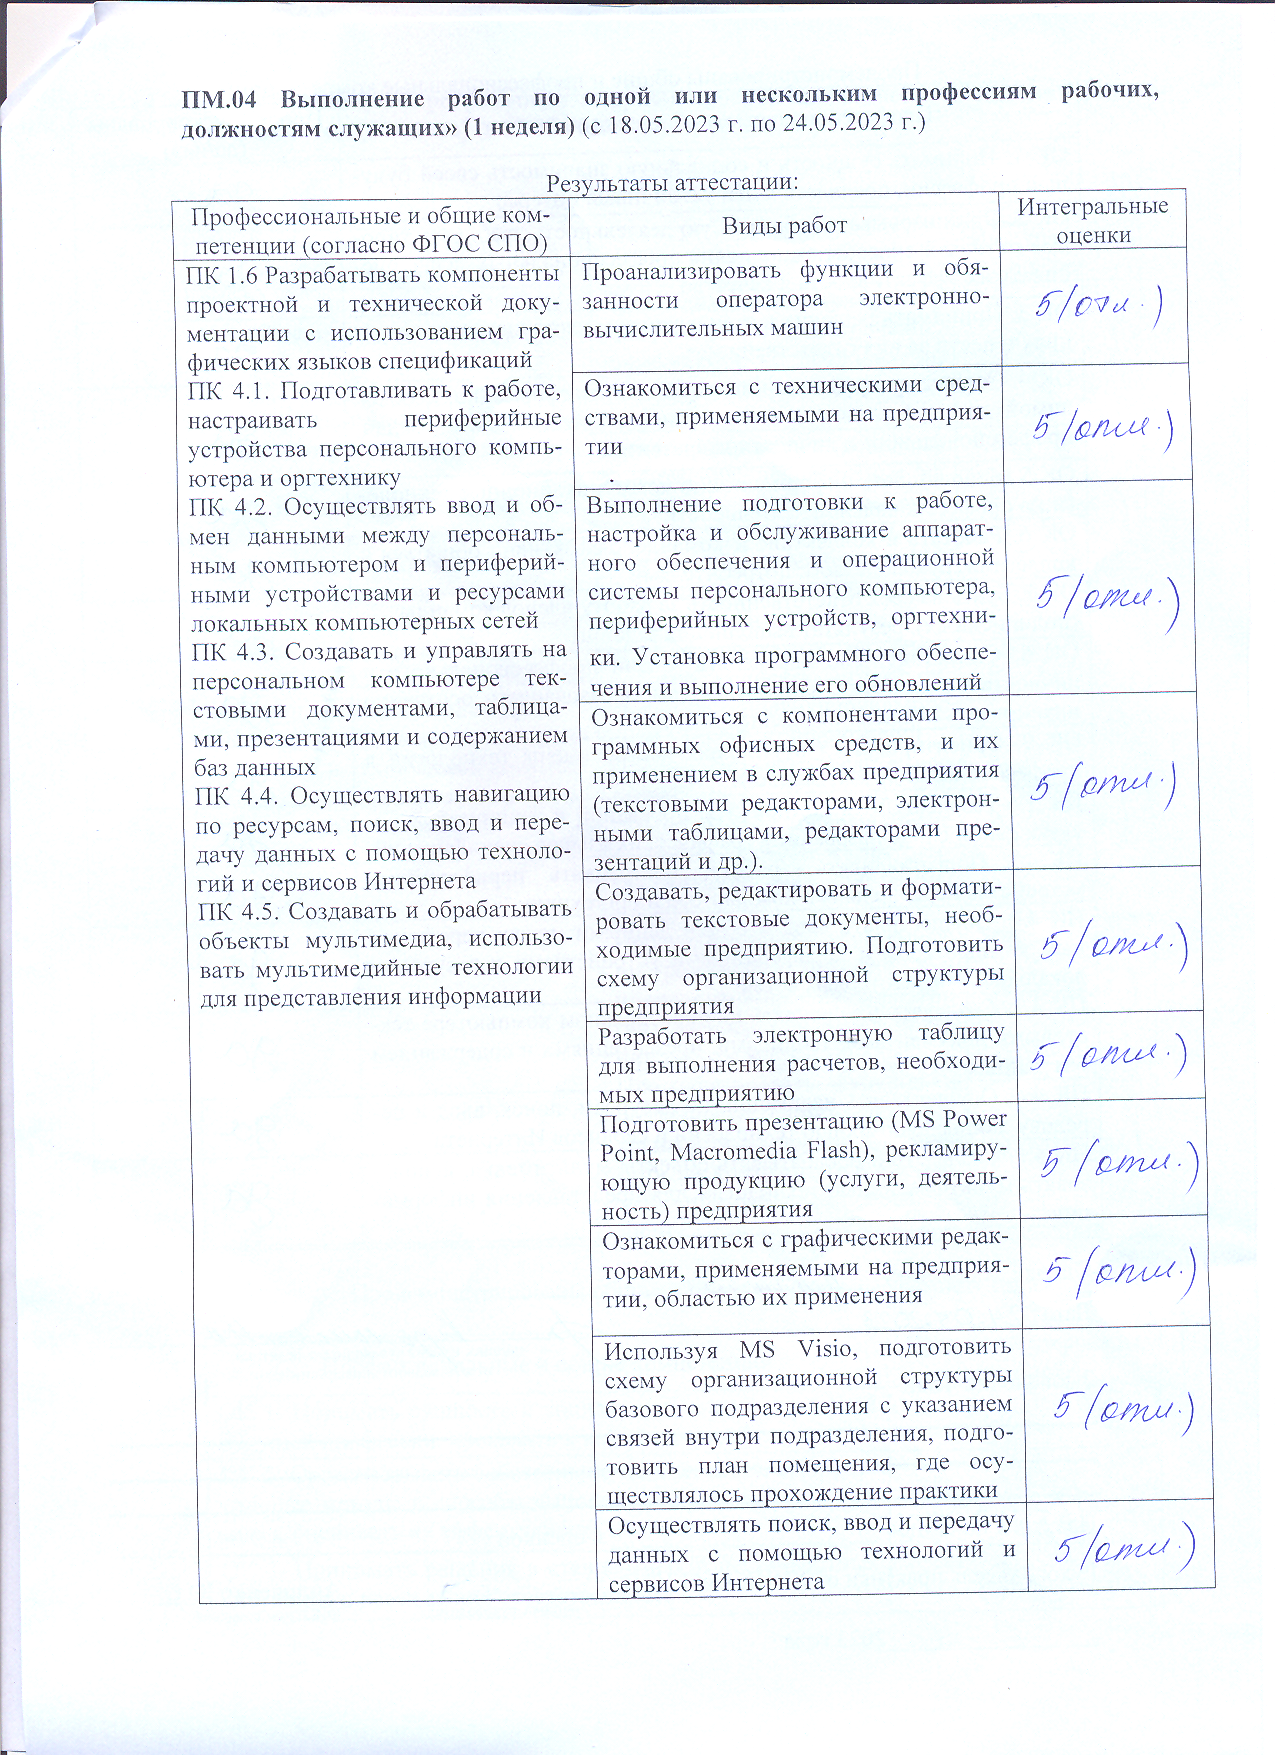 ПМ.04 Выполнение работ по одной или нескольким профессиям рабочих,
должностям служащих» (1 неделя) (с 18.05.2023 г. по 24.05.2023 г.)
Результаты аттестации:
Профессиональные и общие ком-
петенции (согласно ФГОС СПО)
Виды работ
Интегральные
оценки
ПК 1.6 Разрабатывать компоненты
проектной и технической доку-
ментации с использованием гра-
фических языков спецификаций
ПК 4.1. Подготавливать к работе,
настраивать периферийные
устройства персонального компь-
ютера и оргтехнику
ПК 4.2. Осуществлять ввод и об-
мен данными между персональ-
ным компьютером и периферий-
ными устройствами и ресурсами
локальных компьютерных сетей
ПК 4.3. Создавать и управлять на
персональном компьютере тек-
стовыми документами, таблица-
ми, презентациями и содержанием
баз данных
ПК 4.4. Осуществлять навигацию
по ресурсам, поиск, ввод и пере-
дачу данных с помощью техноло-
гий и сервисов Интернета
ПК 4.5. Создавать и обрабатывать
объекты мультимедиа, использо-
вать мультимедийные технологии
для представления информации
Проанализировать функции и обя-
занности оператора электронно-
вычислительных машин
5 (отл.)
Ознакомиться с техническими сред-
ствами, применяемыми на предприя-
тии
5 (отл.)
Выполнение подготовки к работе,
настройка и обслуживание аппарат-
ного обеспечения и операционной
системы персонального компьютера,
периферийных устройств, оргтехни-
ки. Установка программного обеспе-
чения и выполнение его обновлений
5 (отл.)
Ознакомиться с компонентами про-
граммных офисных средств, и их
применением в службах предприятия
(текстовыми редакторами, электрон-
ными таблицами, редакторами пре-
зентаций и др.).
5 (отл.)
Создавать, редактировать и формати-
ровать текстовые документы, необ-
ходимые предприятию. Подготовить
схему организационной структуры
предприятия
5 (отл.)
Разработать электронную таблицу
для выполнения расчетов, необходи-
мых предприятию
5 (отл.)
Подготовить презентацию (MS Power
Point, Macromedia Flash), рекламиру-
ющую продукцию (услуги, деятель-
ность) предприятия
5 (отл.)
Ознакомиться с графическими редак-
торами, применяемыми на предприя-
тии, областью их применения
5 (отл.)
Используя MS Visio, подготовить
схему организационной структуры
базового подразделения с указанием
связей внутри подразделения, подго-
товить план помещения, где осу-
ществлялось прохождение практики
5 (отл.)
Осуществлять поиск, ввод и передачу
данных с помощью технологий и
сервисов Интернета
5 (отл.)